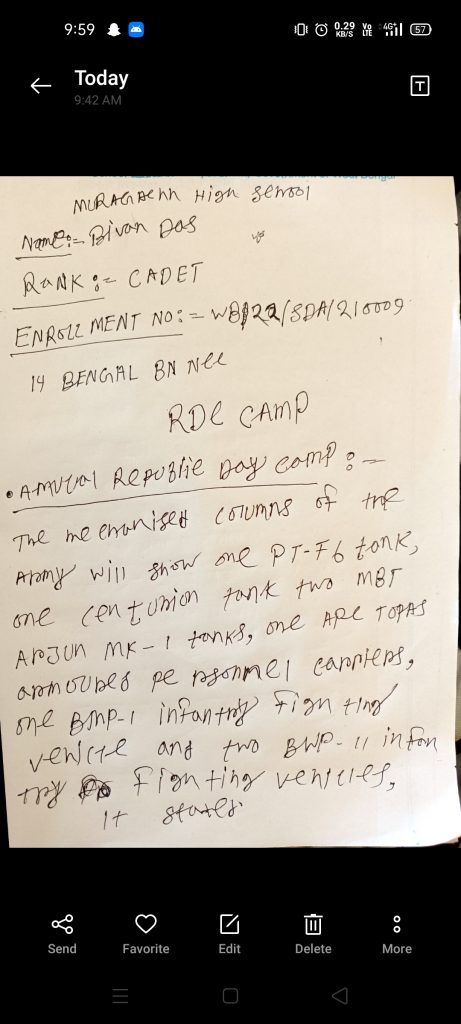 9:59
0.29 KB/S
Vo LTE
4G+
57
Today
9:42 AM
T
MURAGACHH High School
Name:- Bivan Das
RANK :- CADET
ENROLLMENT NO:- WB122/SDA/210009
14 BENGAL BN NCC
RDC CAMP
• Annual Republic Day camp :-
The mechanised columns of the
Army will show one PT-76 tank,
one centurion tank two MBT
ARJUN MK-1 tanks, one APC TOPAS
armoured personnel carriers,
one BMP-1 infantry Fighting
vehicle and two BMP-11 infan
try Fighting vehicles,
it states.
Send
Favorite
Edit
Delete
More